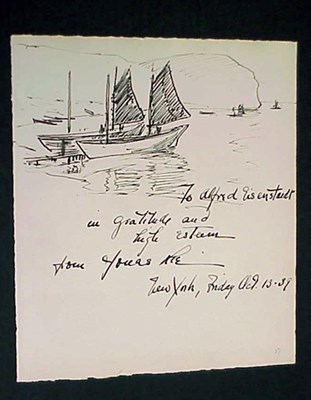 To Alfred Eisenstaedt
in gratitude and
high esteem
from Jonas Lie
New York, Friday Oct. 13-39